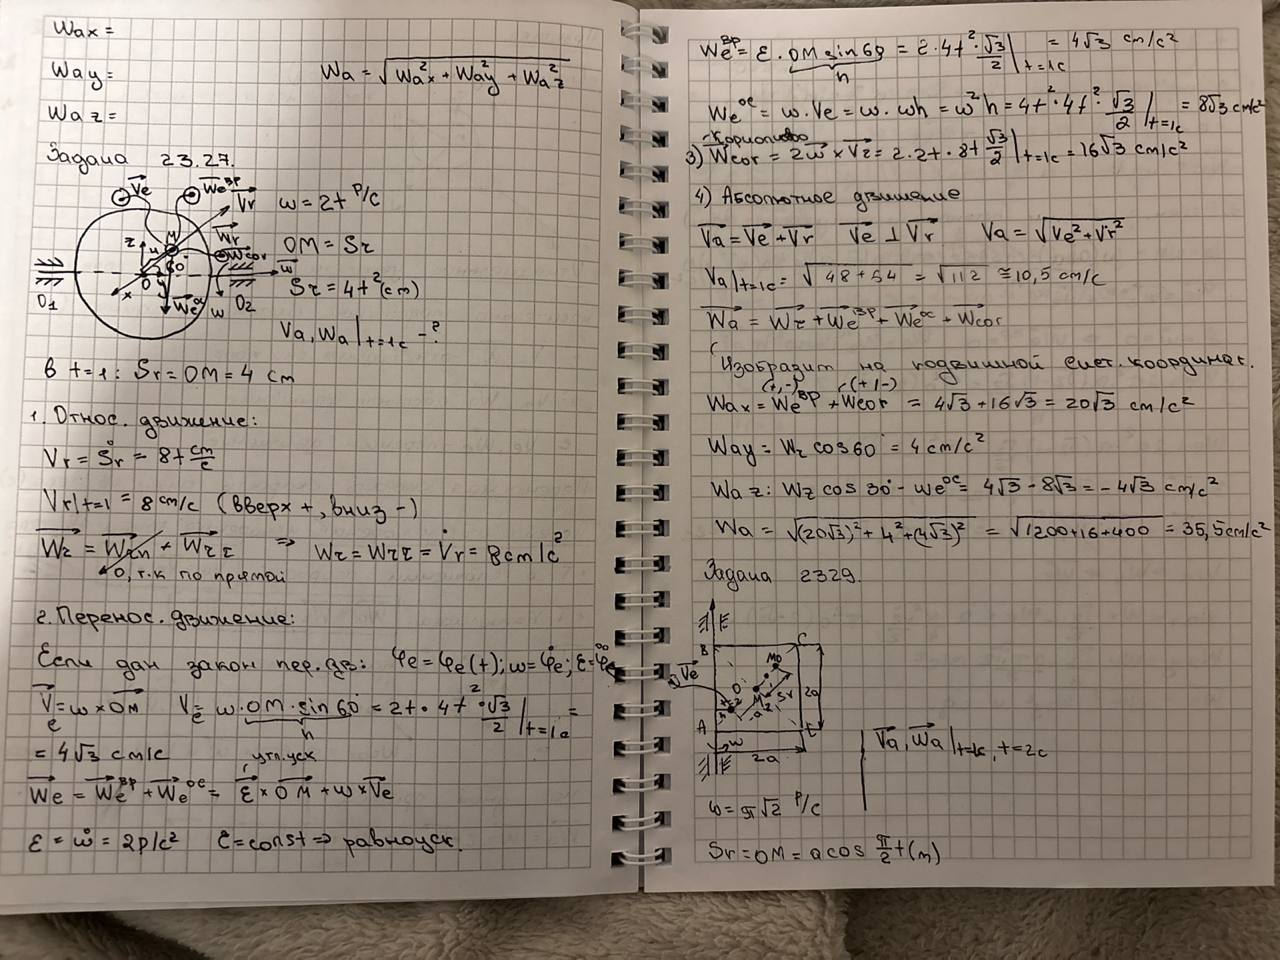 Wax =
Way =
Waz =
Wa = √(Wa²x + Wa²y + Wa²z)
Задача 23.27.
Ve
We^вр
Vr
Wr
Wcor
We^ос
z
y
x
M
O
60°
O1
O2
ω
ω
ω = 2t р/с
OM = Sr
Sr = 4t² (cm)
Va, Wa|t=1c - ?
в t=1: Sr = OM = 4 cm
1. Относ. движение:
Vr = Ṡr = 8t cm/c
Vr|t=1 = 8 cm/c (вверх +, вниз -)
Wr = Wrn + Wrτ ⇒ Wr = Wrτ = V̇r = 8 cm/c²
0, т.к по прямой
2. Перенос. движение:
Если дан закон пер.дв: φe = φe(t); ω = φ̇e; ε = φ̈e
Ve = ω × OM Ve = ω · OM · sin 60° = 2t · 4t² · √3/2 |t=1c =
h
= 4√3 cm/c
угл. уск
We = We^вр + We^ос = ε × OM + ω × Ve
ε = ω̇ = 2 р/c² ε = const ⇒ равноуск.
We^вр = ε · OM sin 60 = 2 · 4t² · √3/2 |t=1c = 4√3 cm/c²
h
We^ос = ω · Ve = ω · ωh = ω²h = 4t² · 4t² · √3/2 |t=1c = 8√3 cm/c²
3) Wcor = 2ω × Vr = 2 · 2t · 8t √3/2 |t=1c = 16√3 cm/c²
4) Абсолютное движение
Va = Ve + Vr Ve ⊥ Vr Va = √(Ve² + Vr²)
Va|t=1c = √(48 + 54) = √112 ≅ 10,5 cm/c
Wa = Wr + We^вр + We^ос + Wcor
Изобразит на подвишной сист. координат.
(+,-) (+/-)
Wax = We^вр + Wcor = 4√3 + 16√3 = 20√3 cm/c²
Way = Wr cos 60° = 4 cm/c²
Waz: Wr cos 30° - We^ос = 4√3 - 8√3 = -4√3 cm/c²
Wa = √((20√3)² + 4² + (4√3)²) = √(1200 + 16 + 400) = 35,5 cm/c²
Задача 2329.
B
C
Ve
M0
O
M
Sr
2a
a
h
A
ω
2a
Va, Wa|t=1c, t=2c
ω = π√2 р/с
Sr = OM = a cos π/2 t (m)